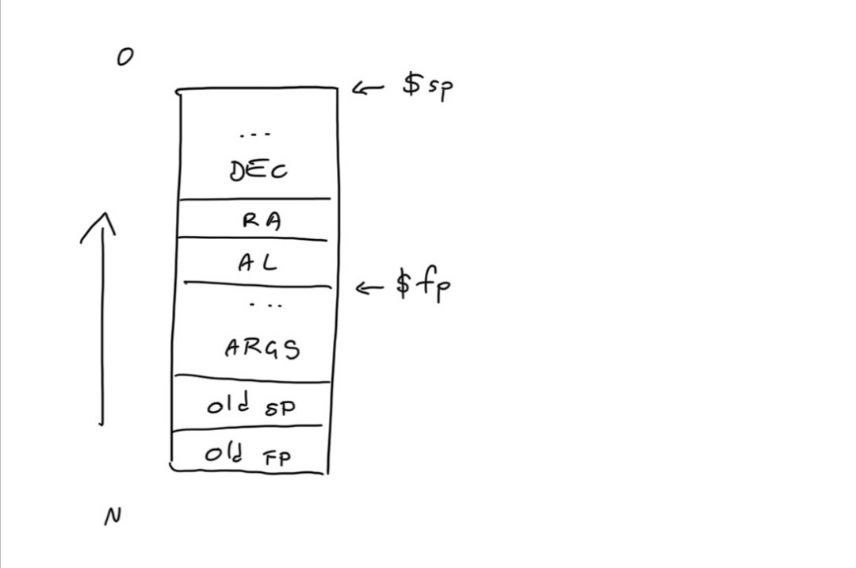 O
← $sp
...
DEC
RA
AL
← $fp
...
ARGS
old SP
old FP
N